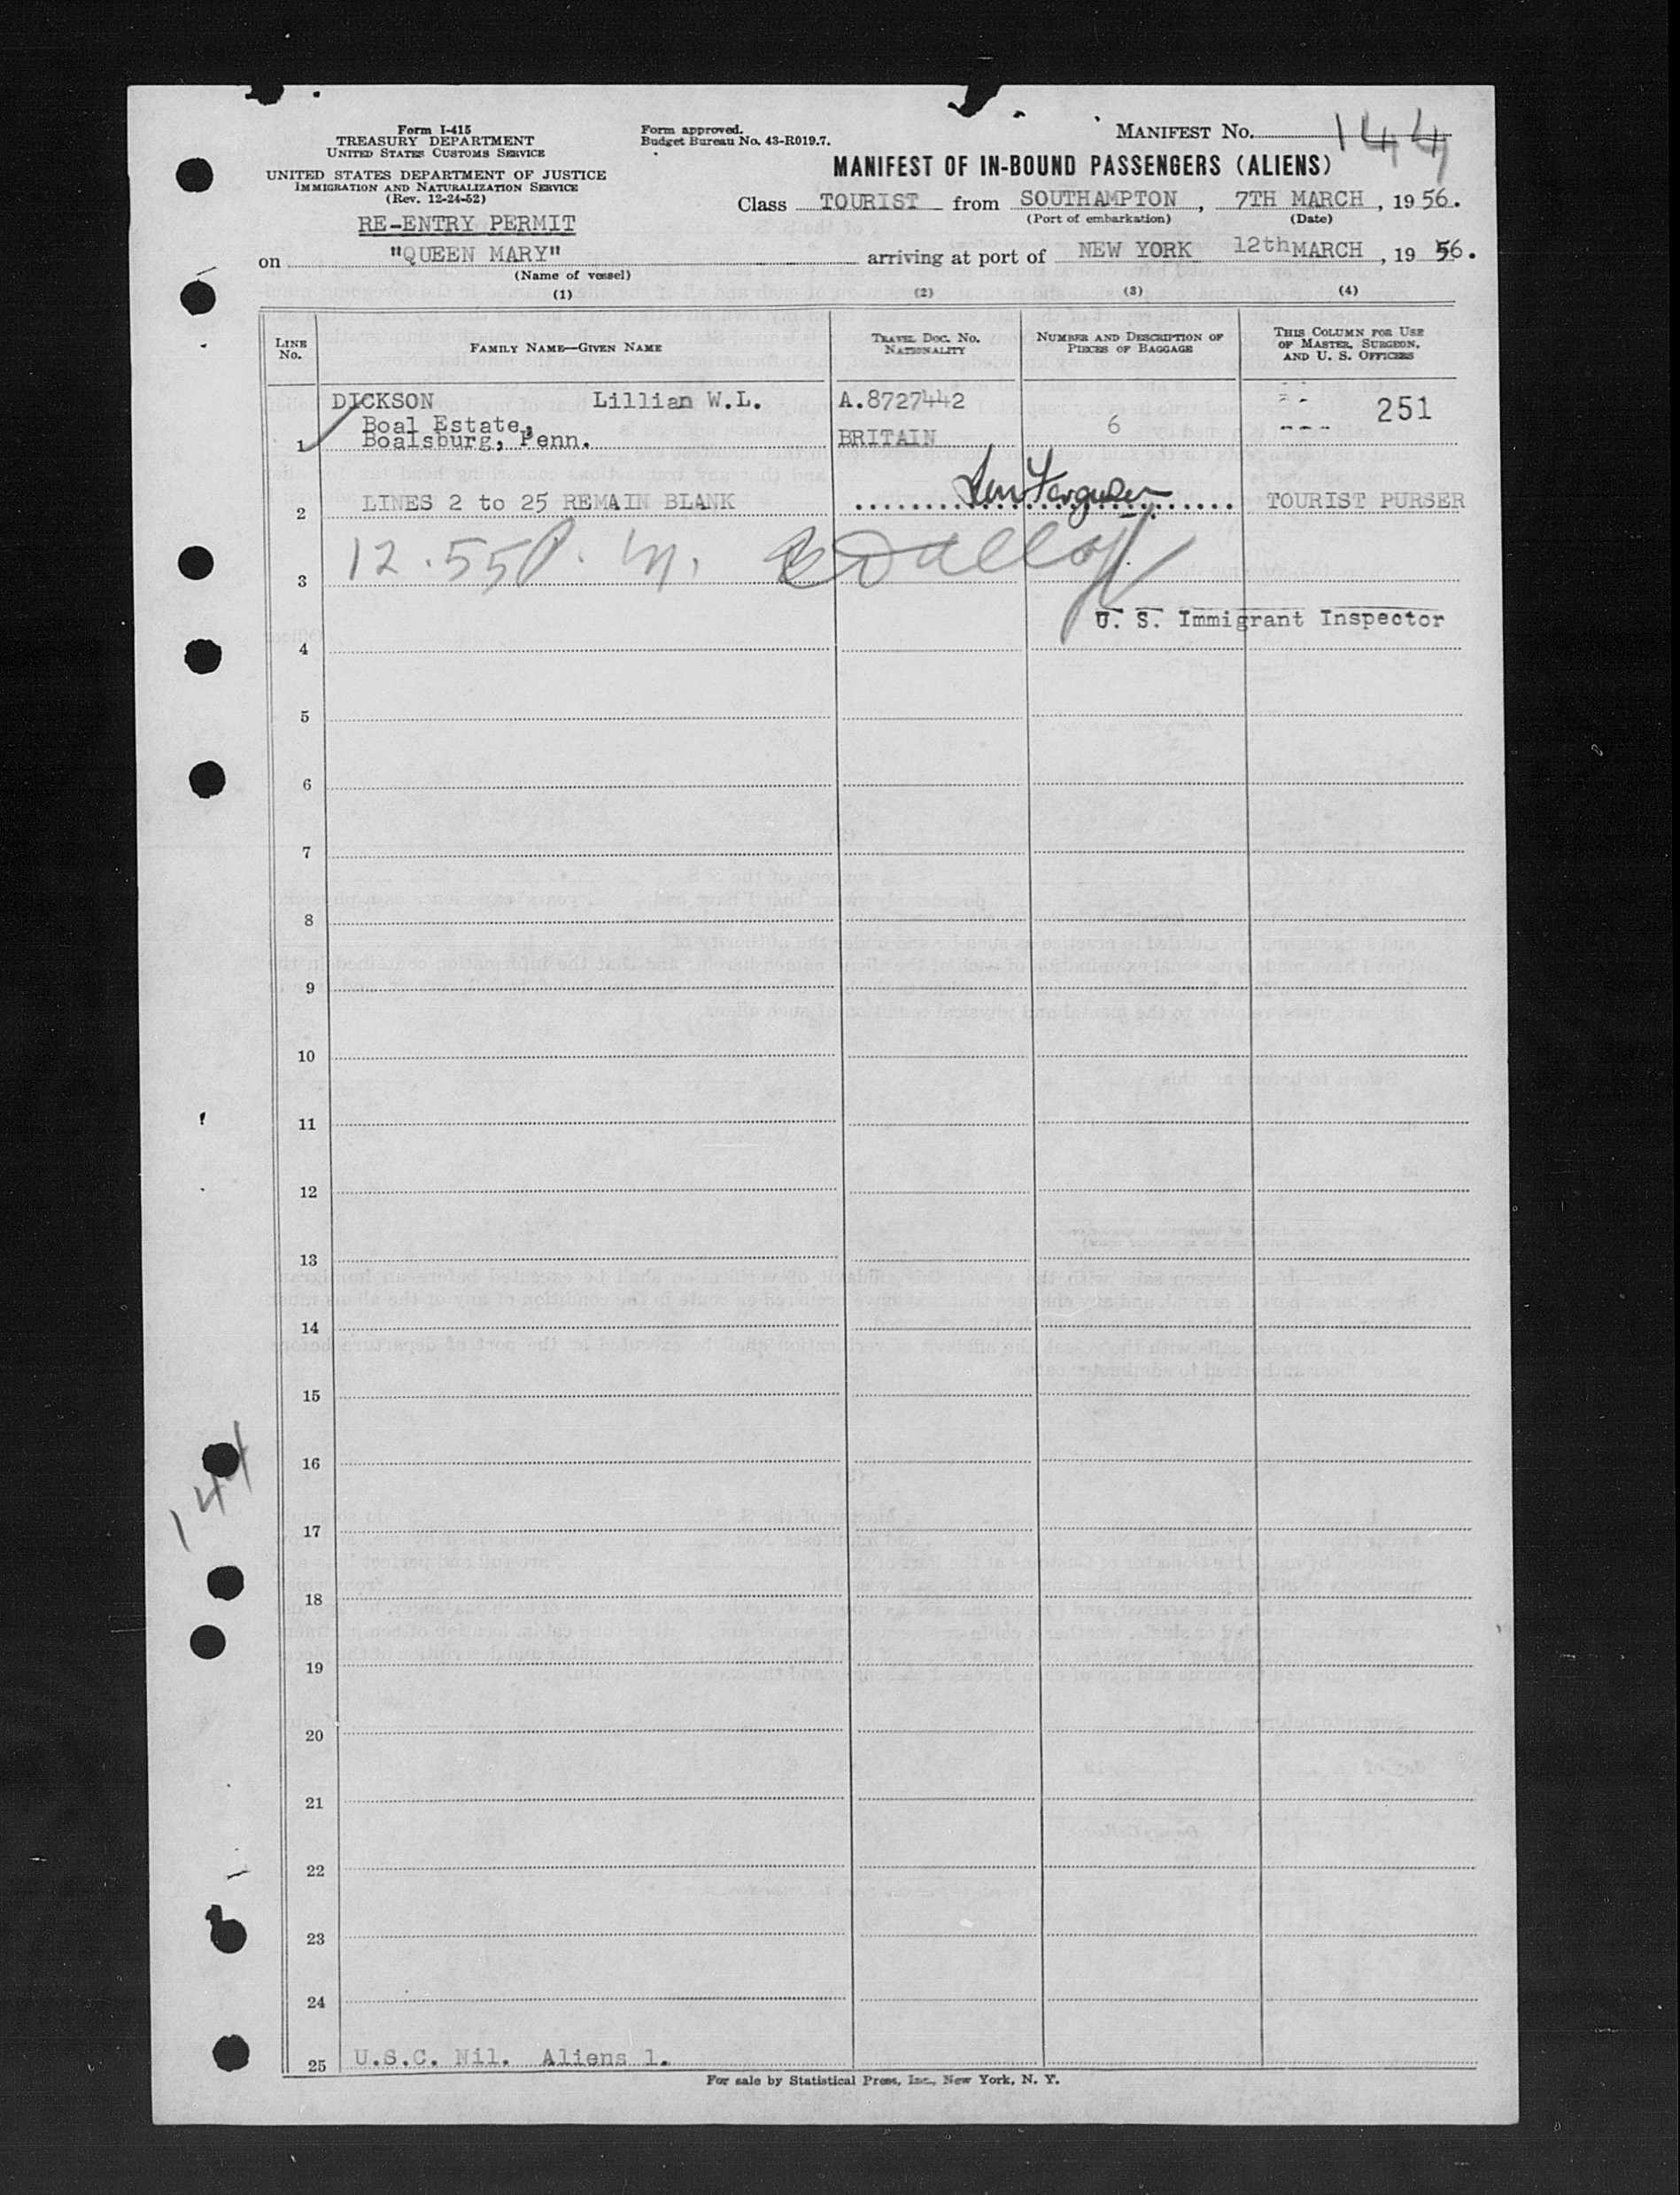 Form I-415
TREASURY DEPARTMENT
UNITED STATES CUSTOMS SERVICE
UNITED STATES DEPARTMENT OF JUSTICE
IMMIGRATION AND NATURALIZATION SERVICE
(Rev. 12-24-52)
RE-ENTRY PERMIT
Form approved.
Budget Bureau No. 43-R019.7.
MANIFEST No. 144
MANIFEST OF IN-BOUND PASSENGERS (ALIENS)
Class TOURIST from SOUTHAMPTON, 7TH MARCH, 1956.
(Port of embarkation) (Date)
on "QUEEN MARY" arriving at port of NEW YORK 12th MARCH, 1956.
(Name of vessel)
(1) (2) (3) (4)
LINE No. FAMILY NAME—GIVEN NAME TRAVEL DOC. No. NATIONALITY NUMBER AND DESCRIPTION OF PIECES OF BAGGAGE THIS COLUMN FOR USE OF MASTER, SURGEON, AND U. S. OFFICERS
DICKSON Lillian W.L. A.8727442 251
Boal Estate,
1 Boalsburg, Penn. BRITAIN 6
2 LINES 2 to 25 REMAIN BLANK TOURIST PURSER
3 12.55 P.m.
U. S. Immigrant Inspector
4
5
6
7
8
9
10
11
12
13
14
15
16
144
17
18
19
20
21
22
23
24
25 U.S.C. Nil. Aliens 1.
For sale by Statistical Press, Inc., New York, N. Y.